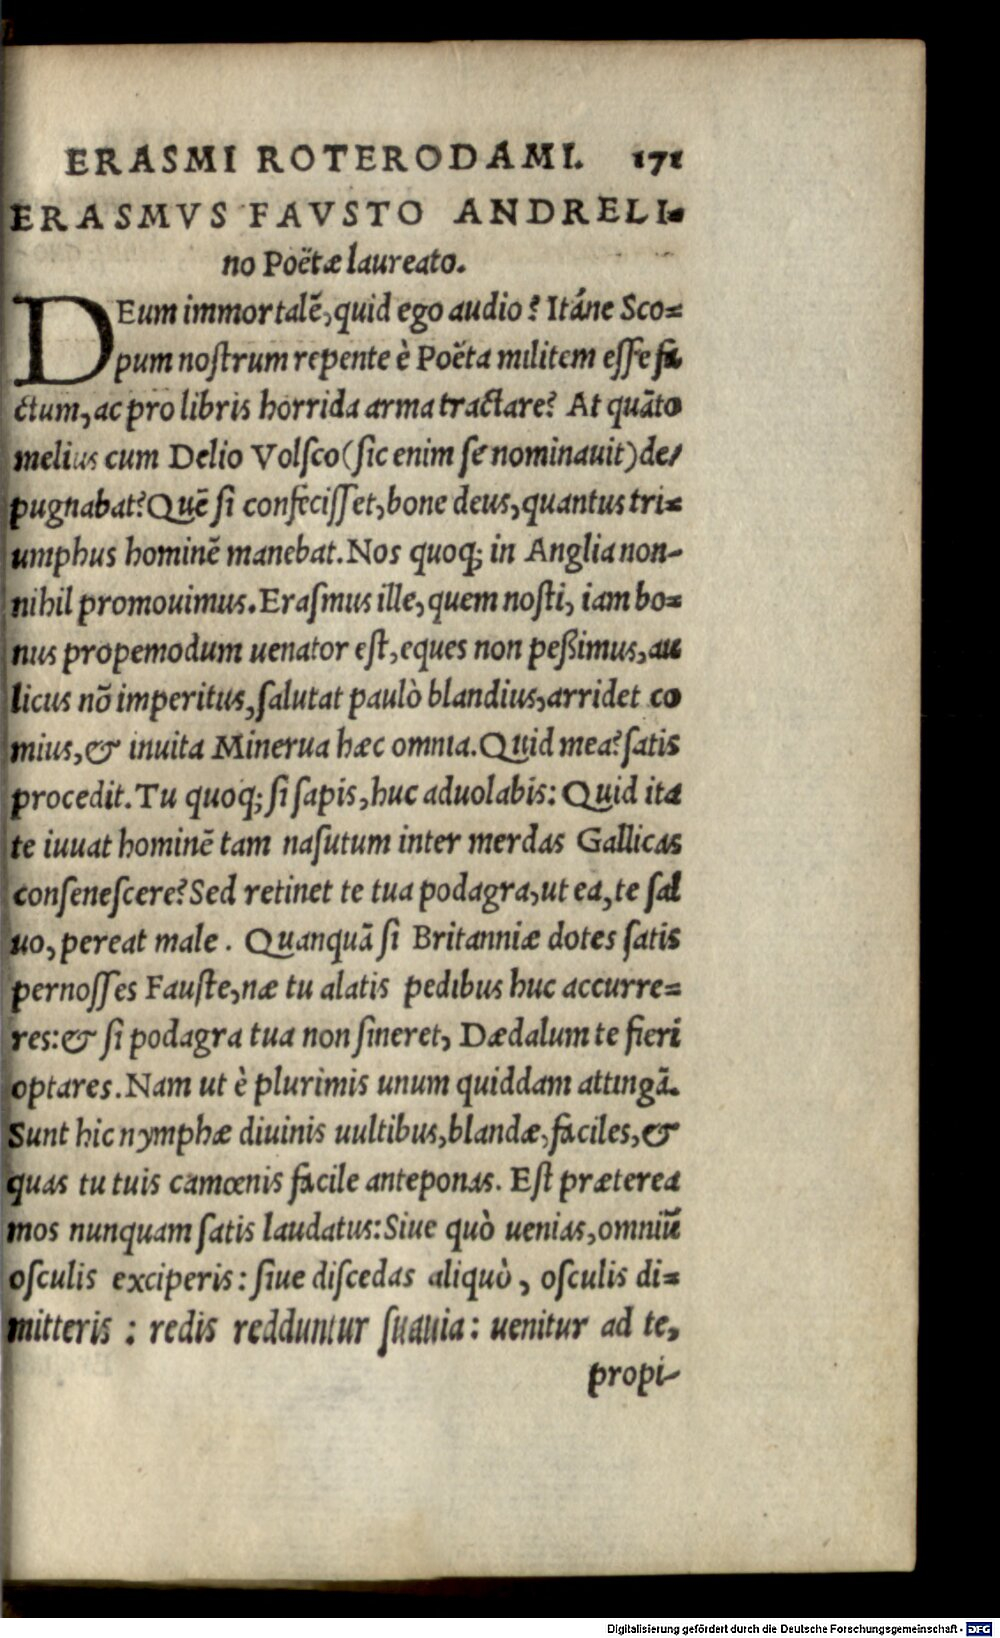 ERASMI ROTERODAMI. 171
ERASMVS FAVSTO ANDRELI-
no Poëtæ laureato.
DEum immortalē, quid ego audio? Itáne Sco=
pum noſtrum repente è Poëta militem eſſe fa
ctum, ac pro libris horrida arma tractare? At quāto
melius cum Delio Volſco (ſic enim ſe nominauit) de/
pugnabat? Quē ſi confeciſſet, bone deus, quantus tri=
umphus hominē manebat. Nos quoq; in Anglia non-
nihil promouimus. Eraſmus ille, quem noſti, iam bo=
nus propemodum uenator eſt, eques non peßimus, au
licus nō imperitus, ſalutat paulò blandius, arridet co
mius, & inuita Minerua hæc omnia. Quid mea? ſatis
procedit. Tu quoq; ſi ſapis, huc aduolabis: Quid ita
te iuuat hominē tam naſutum inter merdas Gallicas
conſeneſcere? Sed retinet te tua podagra, ut ea, te ſal
uo, pereat male. Quanquā ſi Britanniæ dotes ſatis
pernoſſes Fauſte, næ tu alatis pedibus huc accurre=
res: & ſi podagra tua non ſineret, Dædalum te fieri
optares. Nam ut è plurimis unum quiddam attingā.
Sunt hic nymphæ diuinis uultibus, blandæ, faciles, &
quas tu tuis camœnis facile anteponas. Eſt præterea
mos nunquam ſatis laudatus: Siue quò uenias, omniū
oſculis exciperis: ſiue diſcedas aliquò, oſculis di=
mitteris: redis redduntur ſuauia: uenitur ad te,
propi-
Digitalisierung gefördert durch die Deutsche Forschungsgemeinschaft - DFG